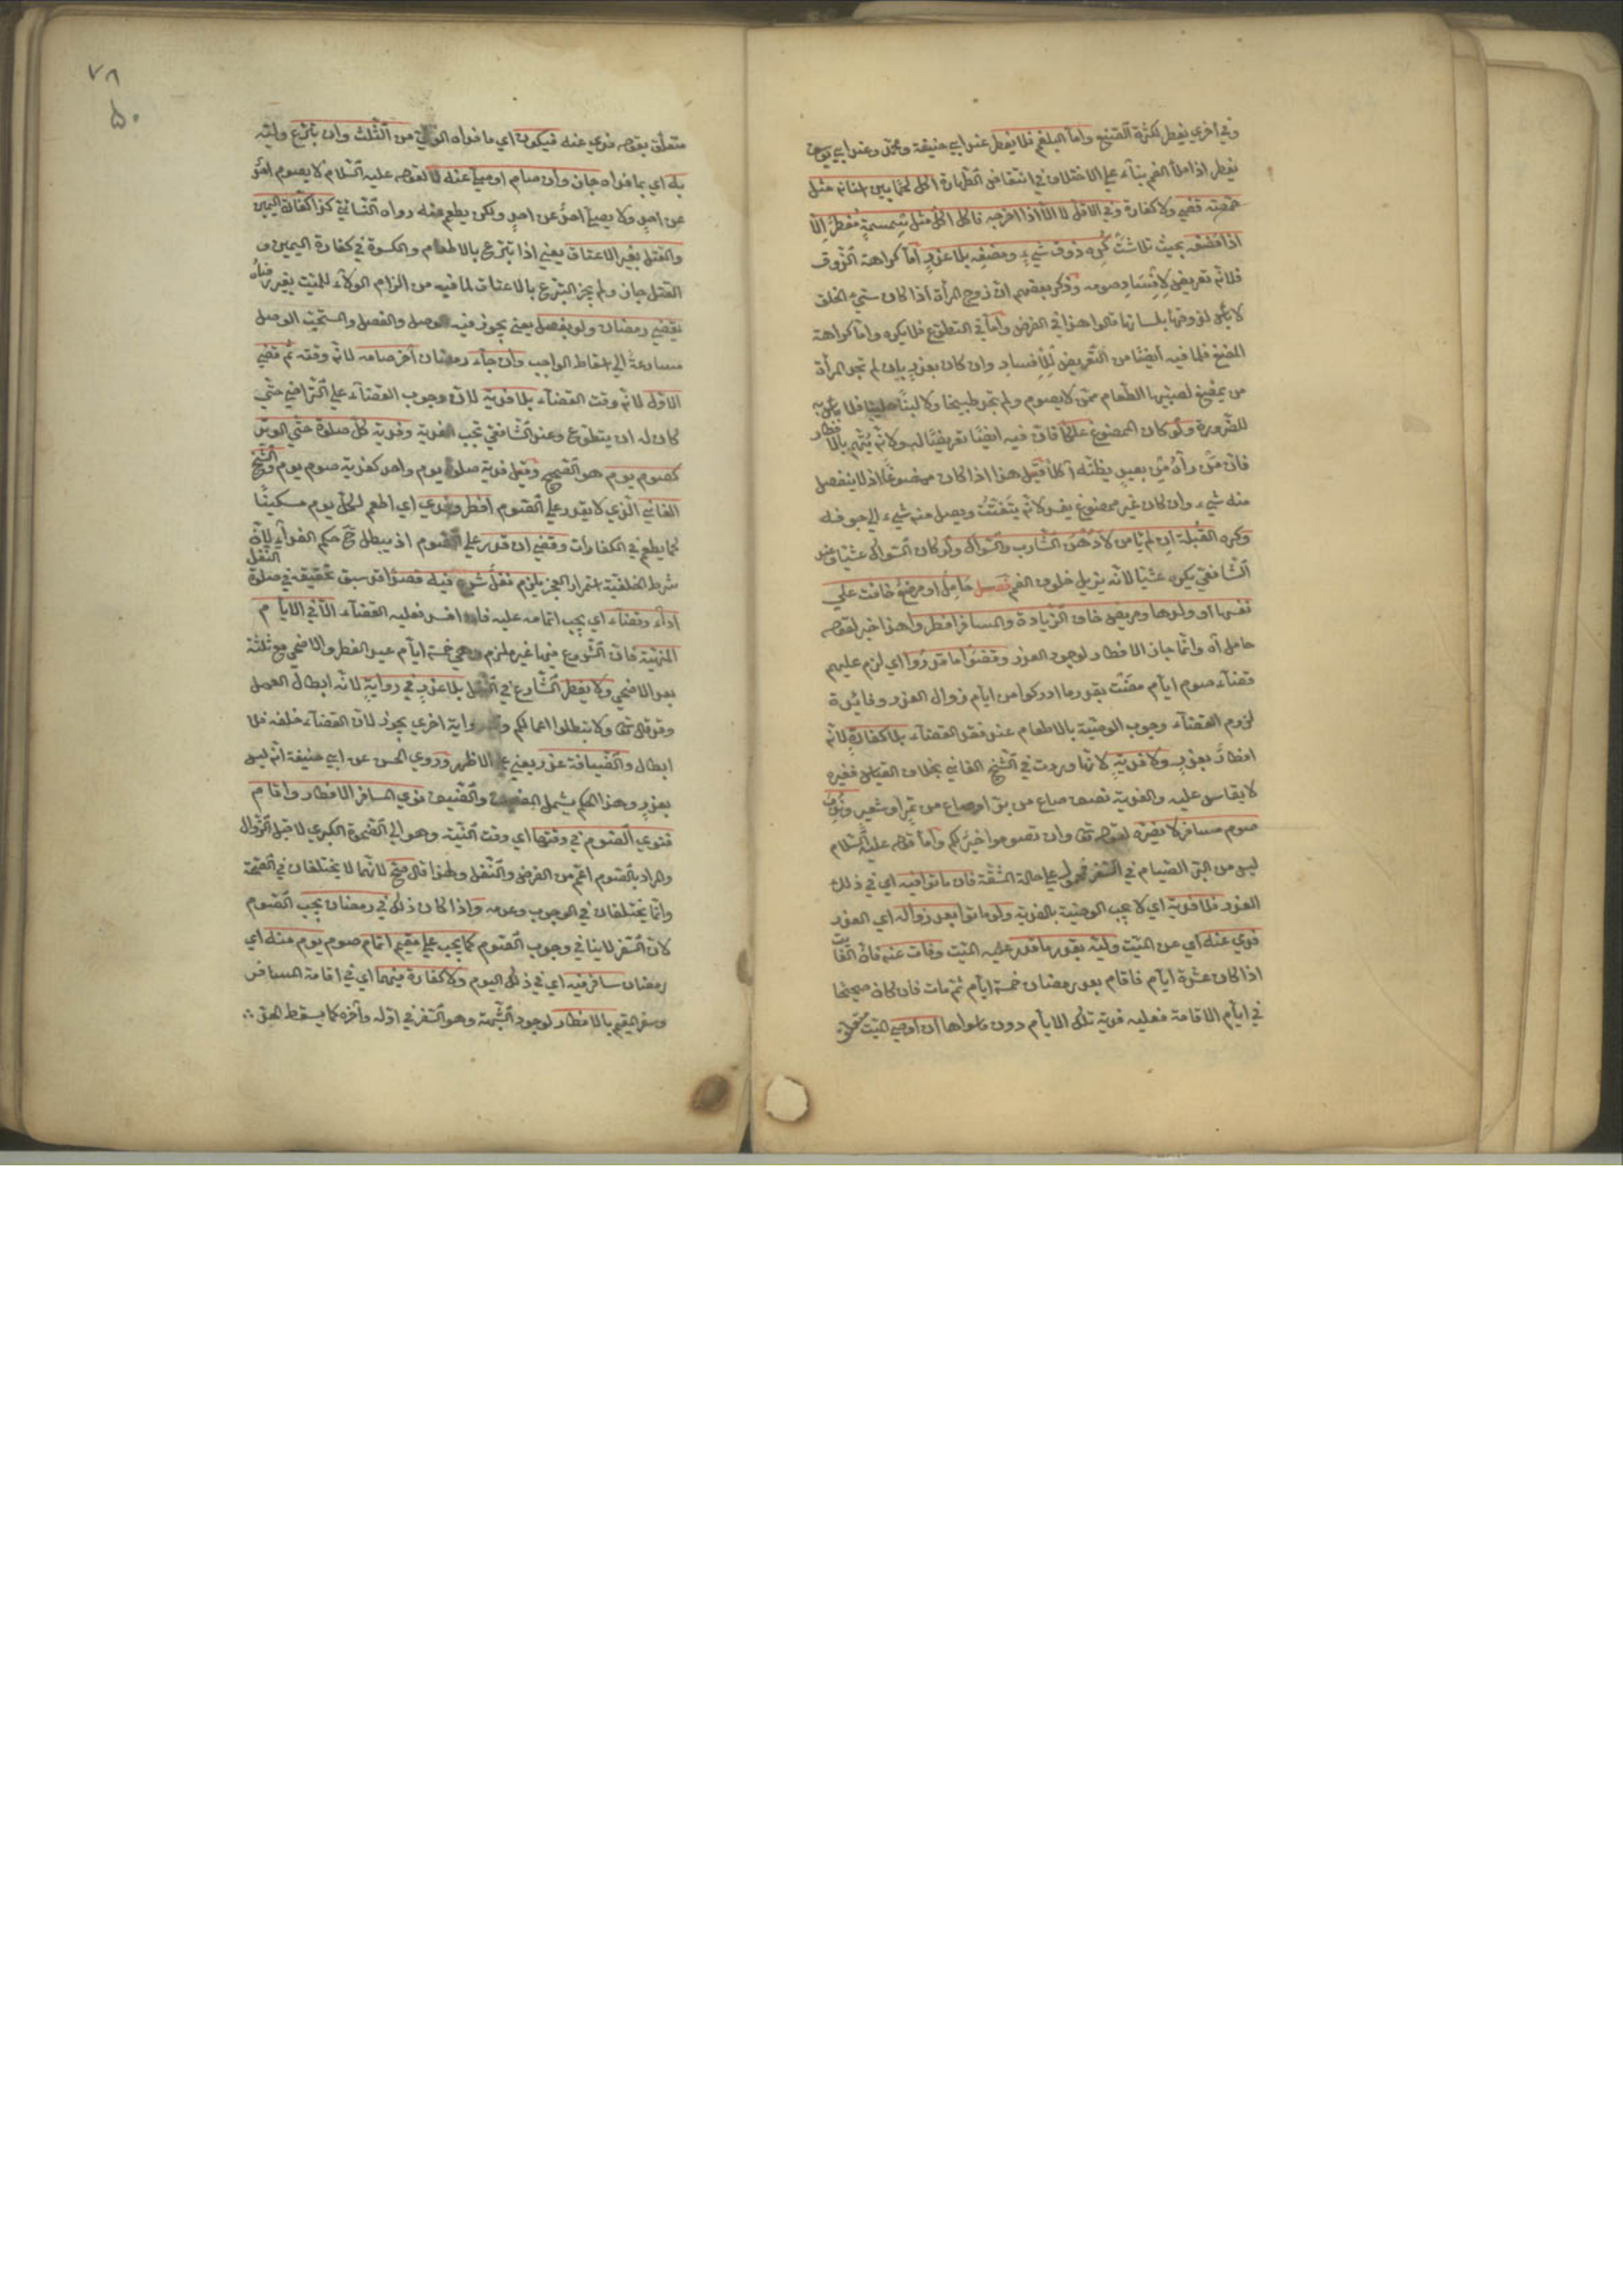 وفي اخري يفطر لكثرة الصنع واما البلغم فلا يفطر عند ابي حنيفة ومحمد وعند ابي يوسف
يفطر اذا ملأ الفم بناء علي الاختلاف في انتقاض الطهارة اكل لحما بين اسنانه مثل
حمصة قضي ولا كفارة وفي الاقل لا الا اذا اخرجه فاكل اكل مثل سمسمة مفطر الا
اذا مضغه بحيث تلاشت كره ذوق شيء ومضغه بلا عذر اما كراهة الذوق
فلانه تعريض لافساد صومه وذكر بعضهم ان زوج المرأة اذا كان سيء الخلق
لا بأس لذوقها بلسانها قالوا هذا في الفرض واما في التطوع فلا يكره واما كراهة
المضغ فلما فيه ايضا من التعريض للافساد وان كان بعذر بان لم تجد المرأة
من يمضغ لصبيها الطعام ممن لا يصوم ولم تجد طبيخا ولا لبنا حليبا فلا بأس به
للضرورة ولو كان الممضوغ علكا فان فيه ايضا تعريضا له ولانه يتهم بالافطار
فان من رآه من بعيد يظنه آكلا قيل هذا اذا كان ممضوغا اذ لا ينفصل
منه شيء وان كان غير ممضوغ يفسد لانه يتفتت ويصل منه شيء الي جوفه
وكره القبلة ان لم يأمن لا دهن الشارب والسواك ولو كان السواك عشيا وعند
الشافعي يكره عشيا لانه يزيل خلوف الفم فصل حامل او مرضع خافت علي
نفسها او ولدها ومريض خاف الزيادة والمسافر افطروا هذا خبر لقوله
حامل آه وانما جاز الافطار لوجود العذر وقضوا ما قدروا اي لزم عليهم
قضاء صوم ايام مضت بقدر ما ادركوا من ايام زوال العذر وفائدة
لزوم القضاء وجوب الوصية بالاطعام عند فقد القضاء بلا كفارة لانه
افطار بعذر ولا فدية لانها وردت في الشيخ الفاني بخلاف القياس فغيره
لا يقاس عليه والفدية نصف صاع من بر او صاع من تمر او شعير وندب
صوم مسافر لا يضره لقوله تعالى وان تصوموا خير لكم واما قوله عليه السلام
ليس من البر الصيام في السفر فمحمول علي حالة المشقة فان ماتوا فيه اي في ذلك
العذر فلا فدية اي لا يجب الوصية بالفدية ولو ماتوا بعد زواله اي العذر
فدي عنه اي عن الميت وليه بقدر ما قدر عليه الميت وفات عنه فان الفائت
اذا كان عشرة ايام فاقام بعد رمضان خمسة ايام ثم مات فان كان صحيحا
في ايام الاقامة فعليه فدية تلك الايام دون ما سواها ان اوصي الميت متعلق
٧٨
٥٠
متعلق بقوله فدي عنه فيكون اي ما فداه الولي من الثلث وان تبرع وليه
به اي بما فداه جاز وان صام او صلي عنه لا لقوله عليه السلام لا يصوم احد
عن احد ولا يصلي احد عن احد ولكن يطعم عنه رواه النسائي كذا كفارة اليمين
والقتل بغير الاعتاق يعني اذا تبرع بالاطعام والكسوة في كفارة اليمين و
القتل جاز ولم يجز التبرع بالاعتاق لما فيه من الزام الولاء للميت بغير رضاه
يقضي رمضان ولو بفصل يعني يجوز فيه الوصل والفصل والمستحب الوصل
مسارعة الي اسقاط الواجب وان جاء رمضان آخر صامه لانه وقته ثم قضي
الاول لانه وقت القضاء بلا فدية لان وجوب القضاء علي التراخي حتي
كان له ان يتطوع وعند الشافعي تجب الفدية وفدية كل صلوة حتي الوتر
كصوم يوم هو الصحيح وقيل فدية صلوة يوم واحد كفدية صوم يوم والشيخ
الفاني الذي لا يقدر علي الصوم افطر وفدي اي اطعم لكل يوم مسكينا
كما يطعم في الكفارات وقضي ان قدر علي الصوم اذ يبطل ح حكم الفداء لان
شرط الخلفية استمرار العجز يلزم نفل شرع فيه قصدا قد سبق تحقيقه في صلوة النفل
اداء وقضاء اي يجب اتمامه عليه فان افسد فعليه القضاء الا في الايام
المنهية فان الشروع فيها غير ملزم وهي خمسة ايام عيد الفطر والاضحي مع ثلثة
بعد الاضحي ولا يفطر الشارع في النفل بلا عذر في رواية لانه ابطال العمل
وقد قال تعالى ولا تبطلوا اعمالكم وفي رواية اخري يجوز لان القضاء خلفه فلا
ابطال والضيافة عذر يعني علي الاظهر وروي الحسن عن ابي حنيفة انه ليس
بعذر وهذا الحكم يشمل المضيف والضيف نوي المسافر الافطار واقام
فنوي الصوم في وقتها اي وقت النية وهو الي الضحوة الكبري لا قبل الزوال
والمراد بالصوم اعم من الفرض والنفل ولهذا قال صح لانهما لا يختلفان في الصحة
وانما يختلفان في الوجوب وعدمه واذا كان ذلك في رمضان يجب الصوم
لان السفر لا ينافي وجوب الصوم كما يجب علي مقيم اتمام صوم يوم منه اي
رمضان سافر فيه اي في ذلك اليوم ولا كفارة فيهما اي في اقامة المسافر
وسفر المقيم بالافطار لوجود الشبهة وهو السفر في اوله وآخره كما يسقط الحد